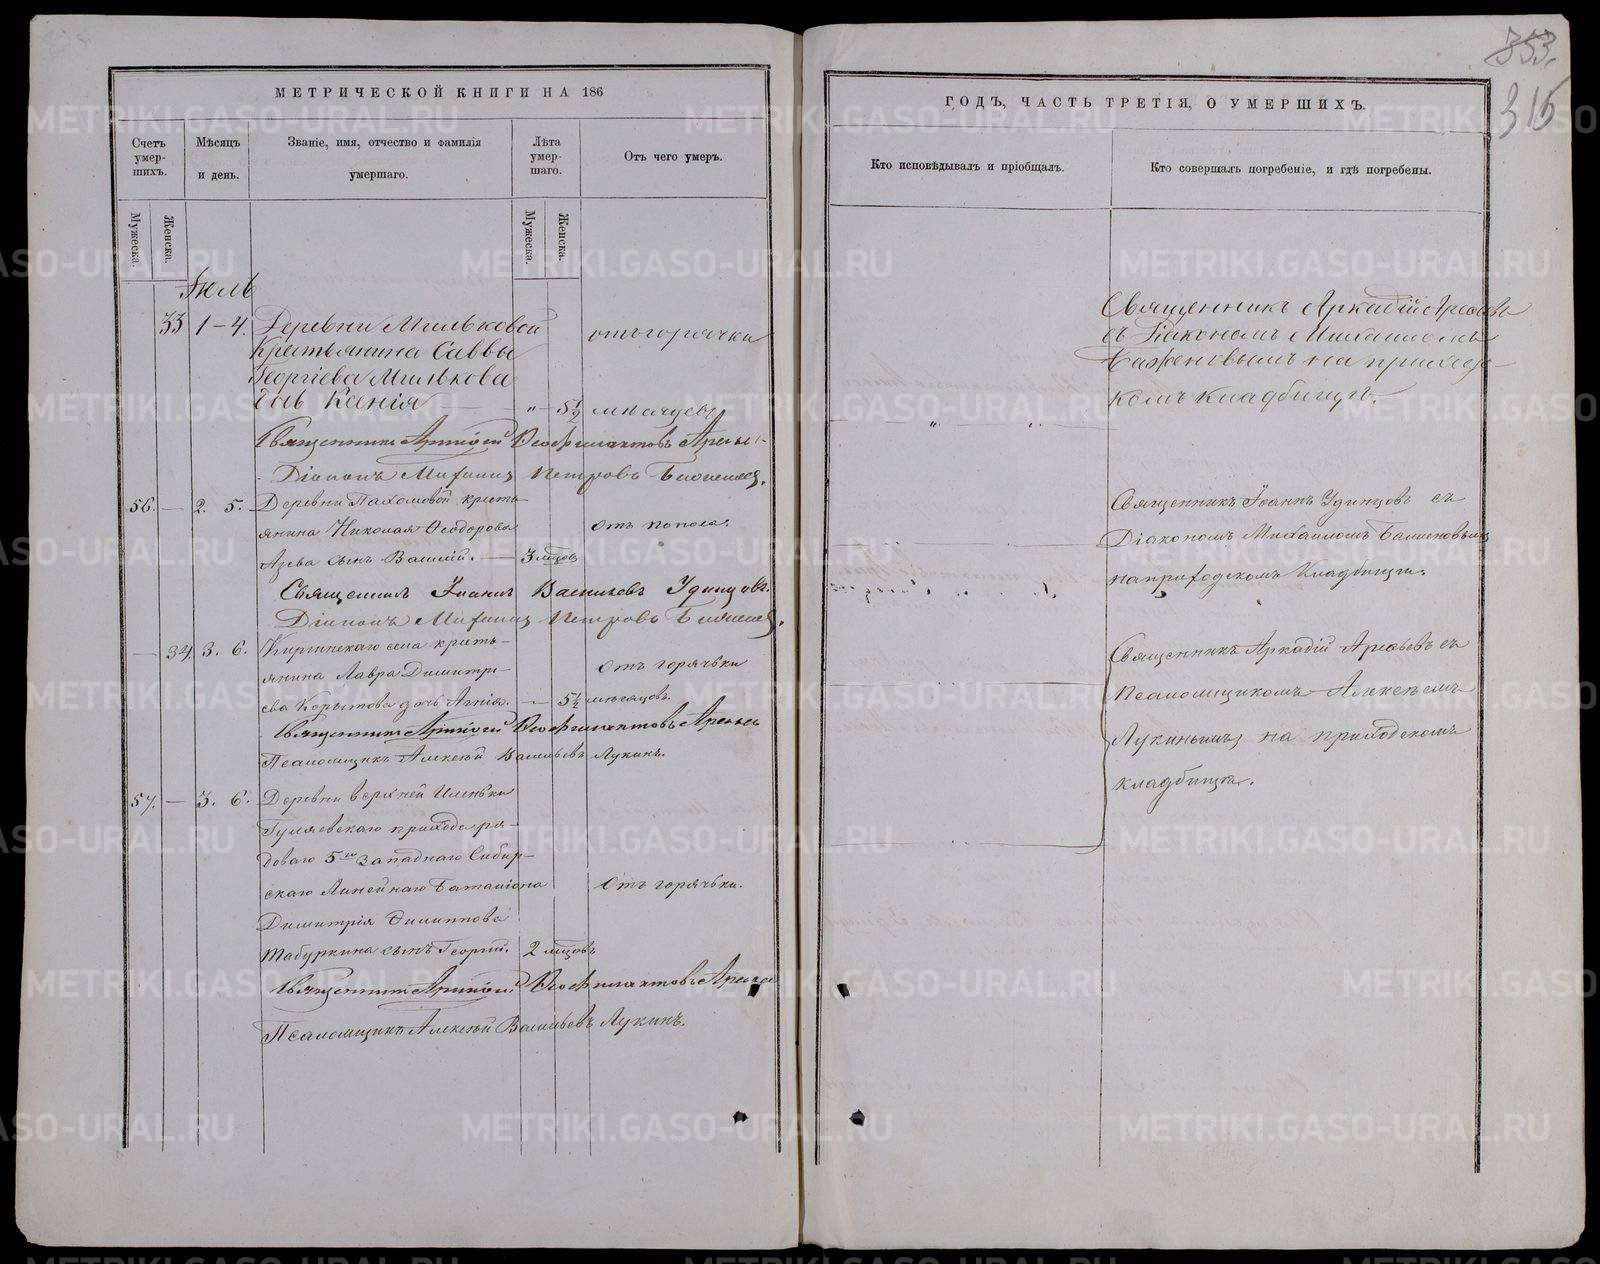 353.
316
МЕТРИЧЕСКОЙ КНИГИ НА 186
Счетъ умер-шихъ.
Мужеска.
Женска.
Мѣсяцъ и день.
Званіе, имя, отчество и фамилія умершаго.
Лѣта умер-шаго.
Мужеска.
Женска.
Отъ чего умеръ.
Іюль
33 1-4. Деревни Мильковой отъ горячки
Крестьянина Саввы
Георгіева Милькова
дочь Ксенія — „ — 5½ мѣсяцевъ
Священникъ Аркадій Ѳеофилактовъ Арефьев
Діаконъ Михаилъ Петровъ Баженовъ.
56. — 2. 5. Деревни Пахомовой кресть-
янина Николая Ѳеодорова Отъ поноса.
Азева сынъ Василій. — 3 мѣсцовъ
Священникъ Іоаннъ Васильевъ Удинцовъ.
Діаконъ Михаилъ Петровъ Баженовъ.
— 34. 3. 6. Киргинскаго села кресть-
янина Лавра Димитрі- Отъ горячьки
ева Корытова дочь Агнія. — 5½ мѣсяцовъ.
Священникъ Аркадій Ѳеофилактовъ Арефьев
Псаломщикъ Алексѣй Васильевъ Лукинъ.
57. — 3. 6. Деревни верхней Иленьки
Гуляевскаго прихода ря-
доваго 5го Западнаго Сибир-
скаго Линейнаго Баталіона Отъ горячьки.
Димитрія Филиппова
Табуркина сынъ Георгій. 2 мѣсцовъ
Священникъ Аркадій Ѳеофилактовъ Арефьев
Псаломщикъ Алексѣй Васильевъ Лукинъ.
ГОДЪ, ЧАСТЬ ТРЕТІЯ, О УМЕРШИХЪ.
Кто исповѣдывалъ и пріобщалъ.
Кто совершалъ погребеніе, и гдѣ погребены.
Священникъ Аркадій Арефьевъ
съ Діакономъ Михаиломъ
Баженовымъ на приход-
комъ кладбищѣ.
Священникъ Іоаннъ Удинцовъ съ
Діакономъ Михаиломъ Баженовымъ
на приходскомъ Кладбищѣ.
Священникъ Аркадій Арефьевъ съ
Псаломщикомъ Алексѣемъ
Лукинымъ на приходскомъ
кладбищѣ.
METRIKI.GASO-URAL.RU